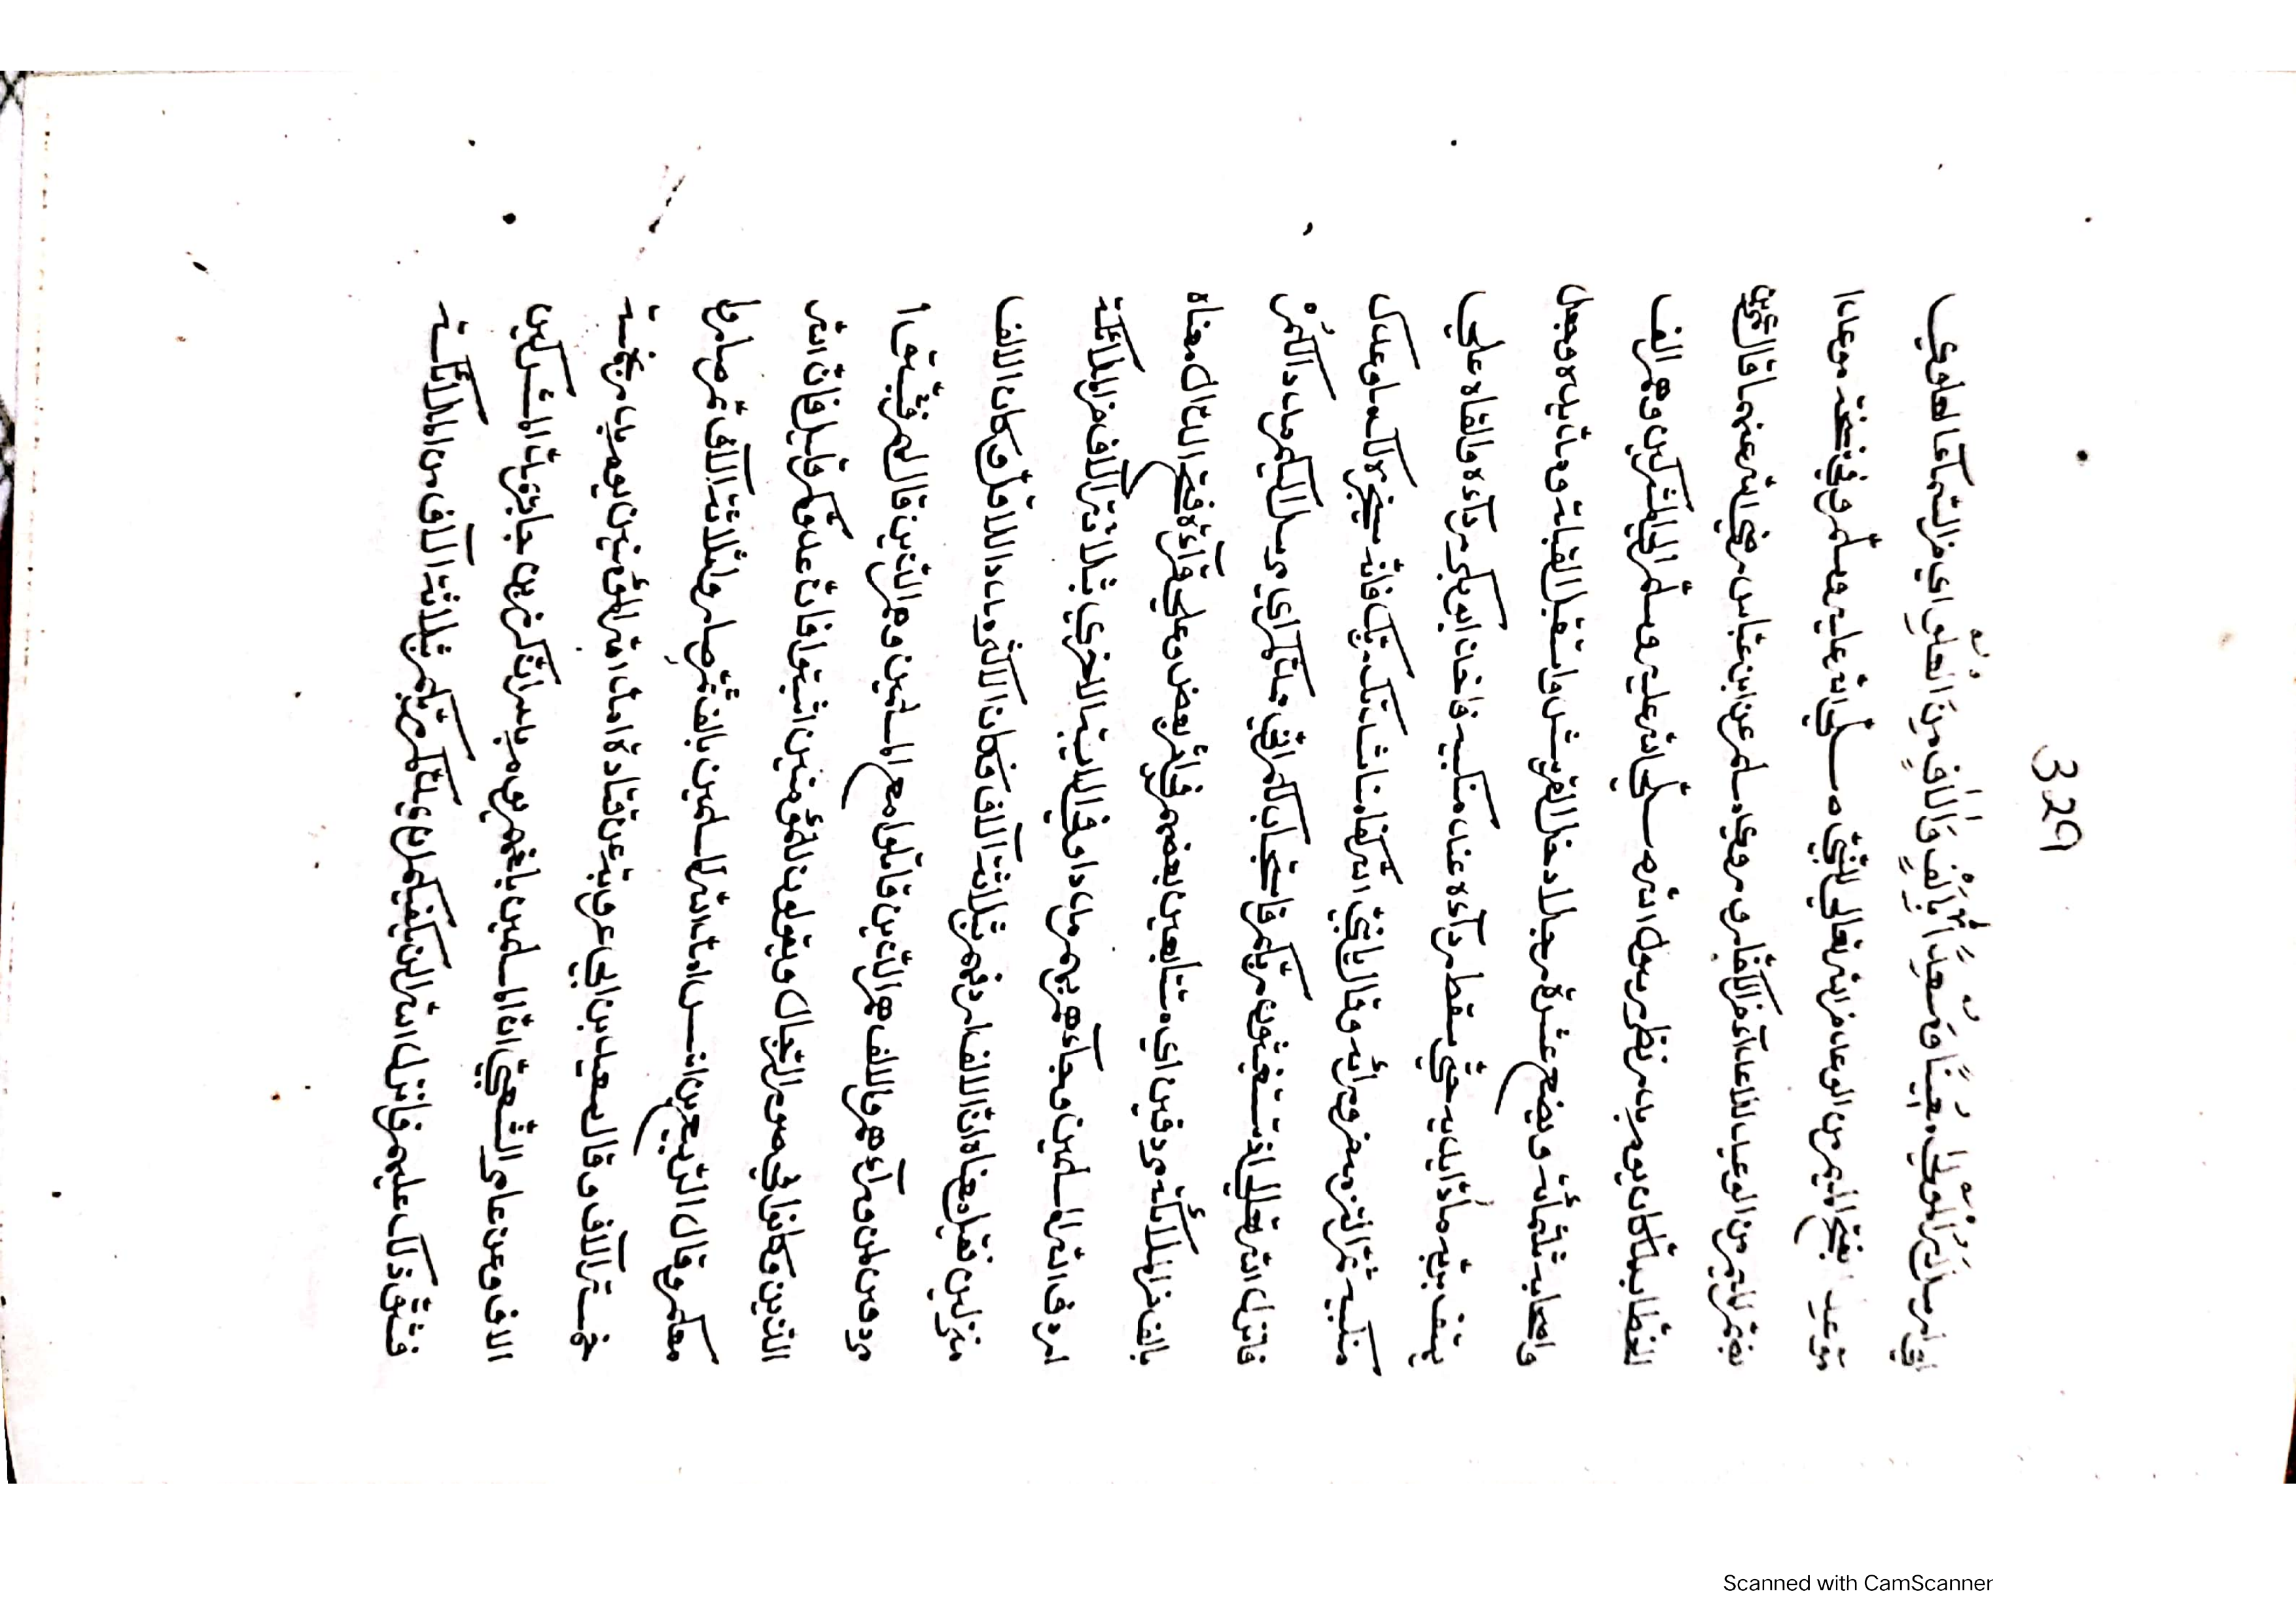 329
اي مدد الله المولى معينا ومسعدا بألف وآلاف من العلو اي من السماء هاوي
موعد بفتح الميم من الوعد من الله تعالى للنبي صلى الله عليه وسلم وفي نسخة موعدا
بضم الميم من الوعيد للاعداء من الكفار وروى مسلم عن ابن عباس رضي الله عنهما قال عمر بن
الخطاب لما كان يوم بدر نظر رسول الله صلى الله عليه وسلم الى المشركين وهم الف
واصحابه ثلثمائة وبضع عشرة رجلا دخل العريش واستقبل القبلة ومد يديه وجعل
يهتف بربه مادّا يديه حتى سقط رداءه عن منكبيه فاخذ ابو بكر رداءه والقاه على
منكبيه ثم التزمه من ورائه وقال يا نبي الله كفا مناشدتك ربك فانه سينجز لك ما وعدك
فانزل الله تعالى اذ تستغيثون ربكم فاستجاب لكم اني ممدكم اي مرسل اليكم مددا لكم
بالف من الملائكة مردفين اي متتابعين بعضهم في اثر بعض وعلى قراءة فتح الدال معناه
اردف الله المسلمين وجاءهم بهم مددا وفي الاية الاخرى بثلاثة آلاف من الملائكة
منزلين فقيل معناه ان الالف اردفهم بثلاثة آلاف فكان الاكثر مددا للاقل وكان الالف
مردفين لمن وراءهم والالف هم الذين قاتلوا مع المسلمين وهم الذين قال لهم فثبتوا
الذين وكانوا في صور الرجال ويقولون للمؤمنين اثبتوا فان عدوكم قليل وان الله
معكم وقال الربيع بن انس امد الله المسلمين بالف ثم صاروا ثلاثة آلاف ثم صاروا
خمسة آلاف وقال سعيد بن ابي عروبة عن قتادة امد الله المؤمنين يوم بدر بخمسة
الاف وعن عامر الشعبي ان المسلمين بلغهم يوم بدر ان كرز بن جابر يمد المشركين
فشق ذلك عليهم فانزل الله الن يكفيكم ان يمدكم ربكم بثلاثة آلاف من الملائكة
Scanned with CamScanner